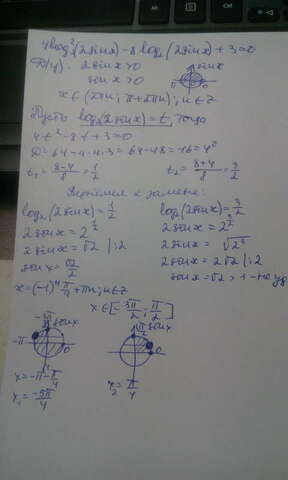 4log₂²(2sinx)-8log₂(2sinx)+3=0
2sinx>0
sinx>0
sinx
x∈(2πn; π+2πn), n∈Z
Пусть log₂(2sinx)=t, тогда
4t²-8t+3=0
D=64-4·4·3=64-48=16=4²
t₁=(8-4)/8=1/2 t₂=(8+4)/8=3/2
Вернёмся к замене:
log₂(2sinx)=1/2 log₂(2sinx)=3/2
2sinx=2^(1/2) 2sinx=2^(3/2)
2sinx=√2 |:2 2sinx=√2³
sinx=√2/2 2sinx=2√2 |:2
sinx=√2>1 -
x=(-1)ⁿ π/4+πn; n∈Z
x∈[-3π/2; π/2]
-3π/2 sinx π/2 sinx
-π 0 0
x=-π-π/4 x₂=π/4
x₁=-5π/4